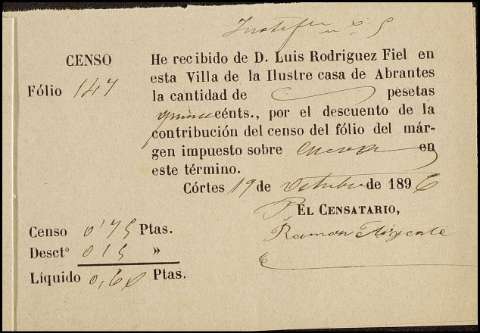 Justif n.º 5
CENSO
Fólio 147
He recibido de D. Luis Rodriguez Fiel en
esta Villa de la Ilustre casa de Abrantes
la cantidad de pesetas
quince cénts., por el descuento de la
contribución del censo del fólio del már-
gen impuesto sobre cueva en
este término.
Córtes 19 de Octubre de 1896
P. EL CENSATARIO,
Ramon
Censo 0'75 Ptas.
Desctº 0,15 »
Líquido 0,60 Ptas.